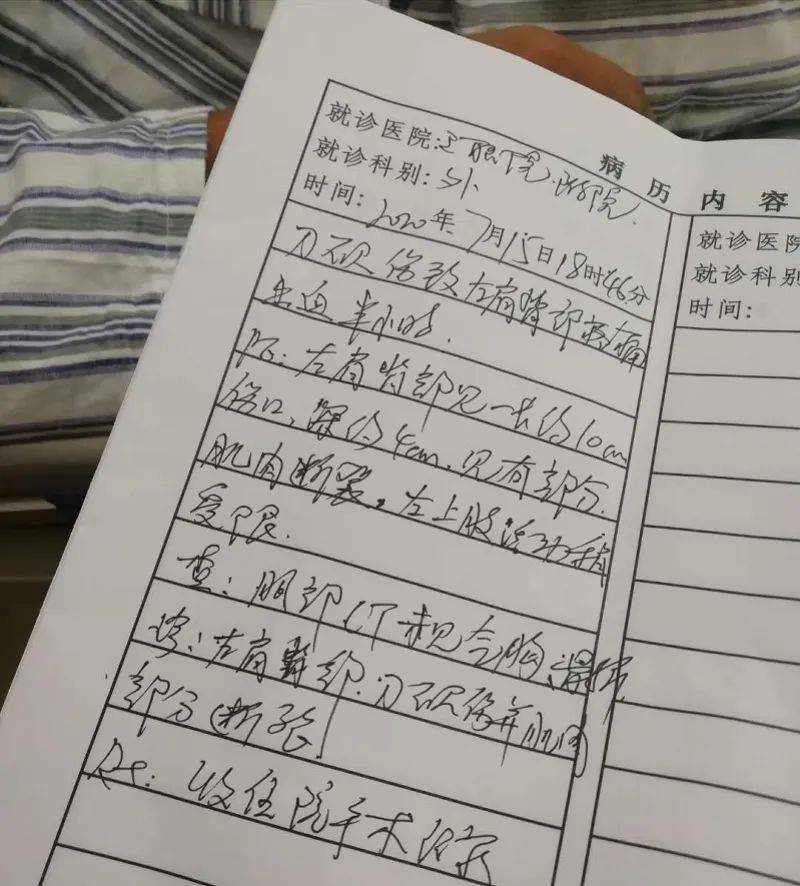 病历内容
就诊医院:
就诊科别:外
时间:2020年7月15日18时46分
刀砍伤致左肩背部疼痛
出血半小时.
PE:左肩背部见一长约10cm
伤口,深约4cm.见有部分
肌肉断裂,左上肢活动稍
受限.
查:胸部CT未见气胸、
诊:左肩背部刀砍伤并肌肉
部分断裂
收住院手术治疗
就诊医院
就诊科别
时间: